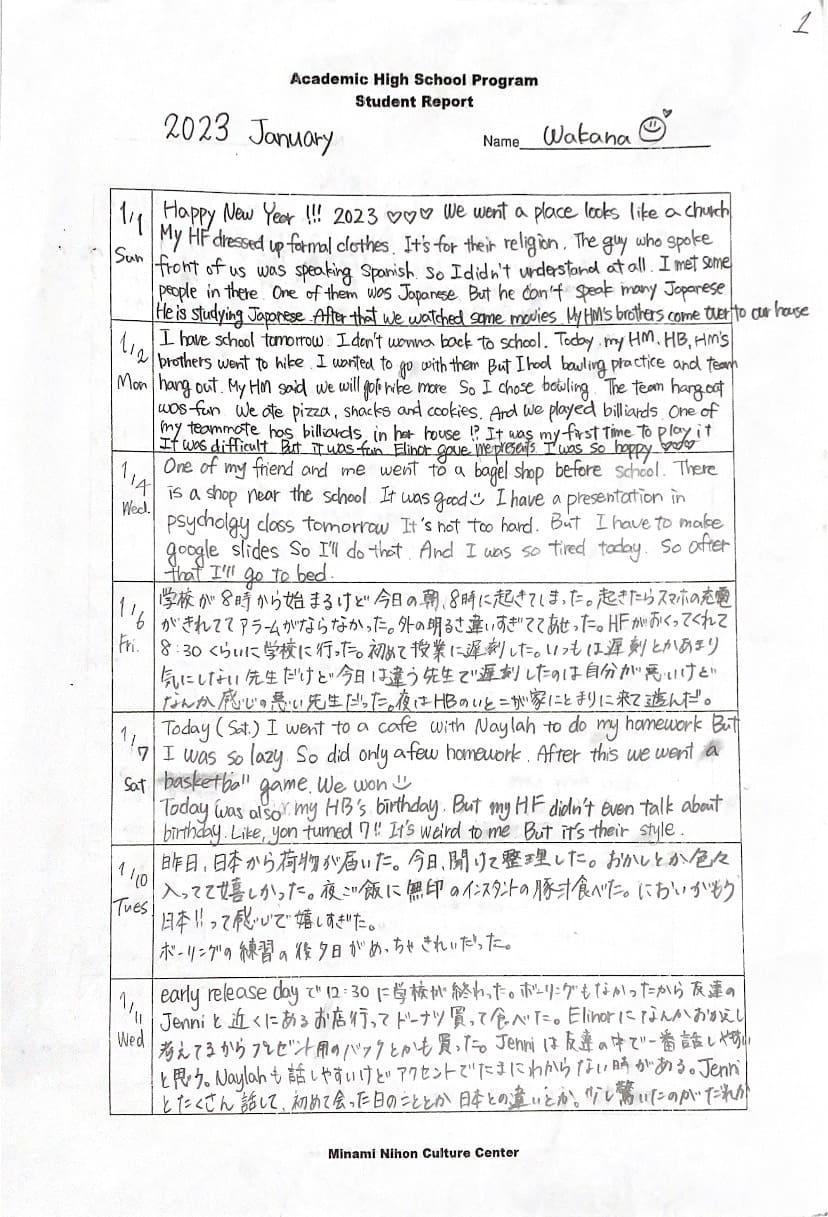 1
Academic High School Program
Student Report
2023 January
Name Wakana
1/1 Sun
Happy New Year !!! 2023 ♡♡♡ We went a place looks like a church
My HF dressed up formal clothes. It's for their religion. The guy who spoke
front of us was speaking Spanish. So I didn't understand at all. I met some
people in there. One of them was Japanese. But he can't speak many Japanese
He is studying Japanese. After that we watched some movies. My HM's brothers come over to our house
1/2 Mon
I have school tomorrow. I don't wanna back to school. Today, my HM, HB, HM's
brothers went to hike. I wanted to go with them But I had bowling practice and team
hang out. My HM said we will go hike more So I chose bowling. The team hang out
was fun. We ate pizza, snacks and cookies. And we played billiards. One of
my teammate has billiards in her house !? It was my first time to play it
It was difficult. But it was fun Elinor gave me presents I was so happy ♡♡♡
1/4 Wed.
One of my friend and me went to a bagel shop before school. There
is a shop near the school It was good I have a presentation in
psycholgy class tomorrow It's not too hard. But I have to make
google slides So I'll do that. And I was so tired today. So after
that I'll go to bed.
1/6 Fri.
学校が8時から始まるけど今日の朝、8時に起きてしまった。起きたらスマホの充電
がきれててアラームがならなかった。外の明るさ違いすぎててあせった。HFがおくってくれて
8:30くらいに学校に行った。初めて授業に遅刻した。いつもは遅刻とかあまり
気にしない先生だけど今日は違う先生で遅刻したのは自分が悪いけど
なんか感じの悪い先生だった。夜はHBのいとこが家にとまりに来て遊んだ。
1/7 Sat
Today (Sat.) I went to a cafe with Naylah to do my homework But
I was so lazy. So did only a few homework. After this we went a
basketball game. We won
Today was also my HB's birthday. But my HF didn't even talk about
birthday. Like, you turned 7!! It's weird to me. But it's their style.
1/10 Tues
昨日、日本から荷物が届いた。今日、開けて整理した。おかしとか色々
入ってて嬉しかった。夜ご飯に無印のインスタントの豚汁食べた。においがもう
日本!!って感じで嬉しすぎた。
ボーリングの練習の後夕日がめっちゃきれいだった。
1/11 Wed
early release day で12:30に学校が終わった。ボーリングもなかったから友達の
Jenniと近くにあるお店行ってドーナツ買って食べた。Elinorになんかおかえし
考えてるからプレゼント用のバックとかも買った。Jenniは友達の中で一番話しやすい
と思う。Naylahも話しやすいけどアクセントでたまにわからない時がある。Jenni
とたくさん話して、初めて会った日のこととか日本との違いとか。少し驚いたのがだれか
Minami Nihon Culture Center